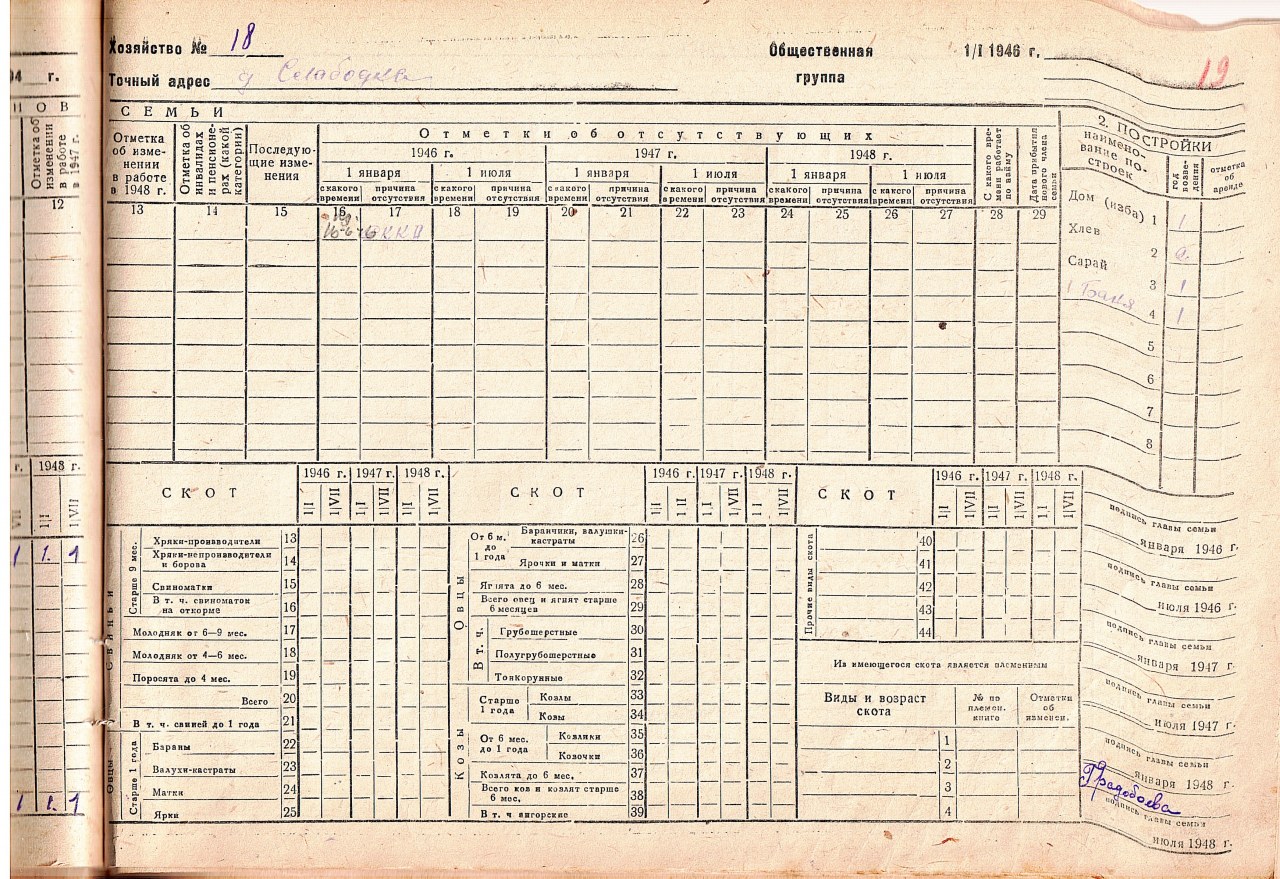 Хозяйство № 18
Общественная группа
1/I 1946 г.
19
Точный адрес д Слабодка
94 г.
НОВ
Отметка об изменении в работе в 1947 г.
12
СЕМЬИ
Отметка об изменении в работе в 1948 г.
Отметка об инвалидах и пенсионерах (какой категории)
Последующие изменения
Отметки об отсутствующих
1946 г. 1947 г. 1948 г.
1 января 1 июля 1 января 1 июля 1 января 1 июля
с какого времени причина отсутствия с какого времени причина отсутствия с какого времени причина отсутствия с какого времени причина отсутствия с какого времени причина отсутствия с какого времени причина отсутствия
С какого времени работает по найму
Дата прибытия нового члена семьи
13 14 15 16 17 18 19 20 21 22 23 24 25 26 27 28 29
2. ПОСТРОЙКИ
наименование построек
год возведения
отметка об аренде
Дом (изба) 1 1
Хлев 2
Сарай 3 1
Баня 4 1
5
6
7
8
г. 1948 г.
VII 1|I 1|VII
1 1. 1
1 1. 1
СКОТ
1946 г. 1947 г. 1948 г.
1|I 1|VII 1|I 1|VII 1|I 1|VII
Свиньи
Старше 9 мес.
Хряки-производители 13
Хряки-непроизводители и борова 14
Свиноматки 15
В т. ч. свиноматок на откорме 16
Молодняк от 6—9 мес. 17
Молодняк от 4—6 мес. 18
Поросята до 4 мес. 19
Всего 20
В т. ч. свиней до 1 года 21
Овцы
Старше 1 года
Бараны 22
Валухи-кастраты 23
Матки 24
Ярки 25
СКОТ
1946 г. 1947 г. 1948 г.
1|I 1 II 1 I 1|VII 1 I 1|VII
Овцы
От 6 м. до 1 года
Баранчики, валушки-кастраты 26
Ярочки и матки 27
Ягнята до 6 мес. 28
Всего овец и ягнят старше 6 месяцев 29
В т. ч.
Грубошерстные 30
Полугрубошерстные 31
Тонкорунные 32
Козы
Старше 1 года
Козлы 33
Козы 34
От 6 мес. до 1 года
Козлики 35
Козочки 36
Козлята до 6 мес. 37
Всего коз и козлят старше 6 мес. 38
В т. ч ангорские 39
СКОТ
1946 г. 1947 г. 1948 г.
1|I 1|VII 1 I 1|VII 1 I 1|VII
Прочие виды скота
40
41
42
43
44
Из имеющегося скота является племенным
Виды и возраст скота
№ по племен. книге
Отметки об изменен.
1
2
3
4
подпись главы семьи
января 1946 г.
подпись главы семьи
июля 1946 г.
подпись главы семьи
января 1947 г.
подпись главы семьи
июля 1947 г.
подпись главы семьи
января 1948 г.
подпись главы семьи
июля 1948 г.